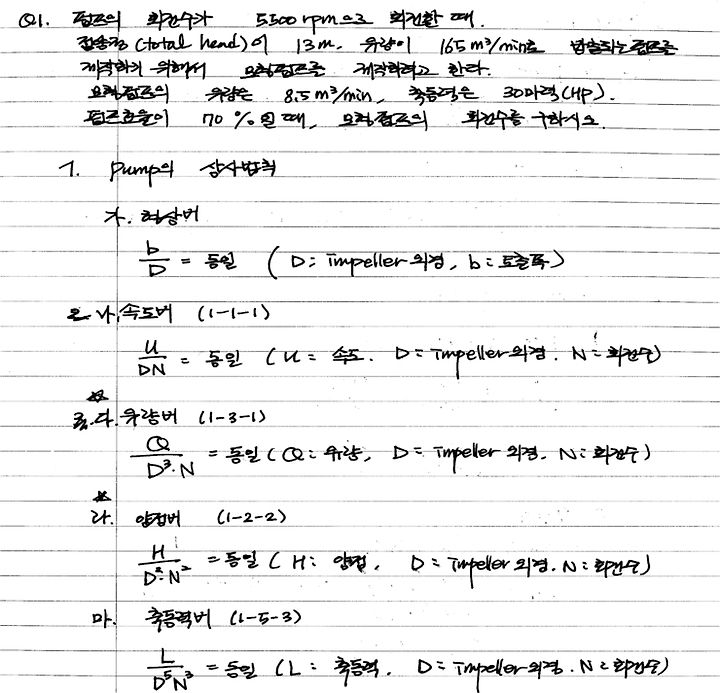 Q1. 펌프의 회전수가 5500rpm으로 회전할 때.
전양정(total head)이 13m. 유량이 165m³/min로 방출되는 펌프를
제작하기 위해서 모형펌프를 제작하려고 한다.
모형펌프의 유량은 8.5m³/min, 축동력은 30마력(HP).
펌프효율이 70%일 때, 모형펌프의 회전수를 구하시오.
1. Pump의 상사법칙
가. 형상비
b/D = 동일 (D: impeller 외경, b: 토출폭)
나. 속도비 (1-1-1)
U/DN = 동일 (U= 속도. D= impeller 외경. N: 회전수)
다. 유량비 (1-3-1)
Q/D³·N = 동일 (Q: 유량, D= impeller 외경, N: 회전수)
라. 양정비 (1-2-2)
H/D²·N² = 동일 (H: 양정, D: impeller 외경. N: 회전수)
마. 축동력비 (1-5-3)
L/D⁵N³ = 동일 (L: 축동력. D= impeller 외경. N: 회전수)